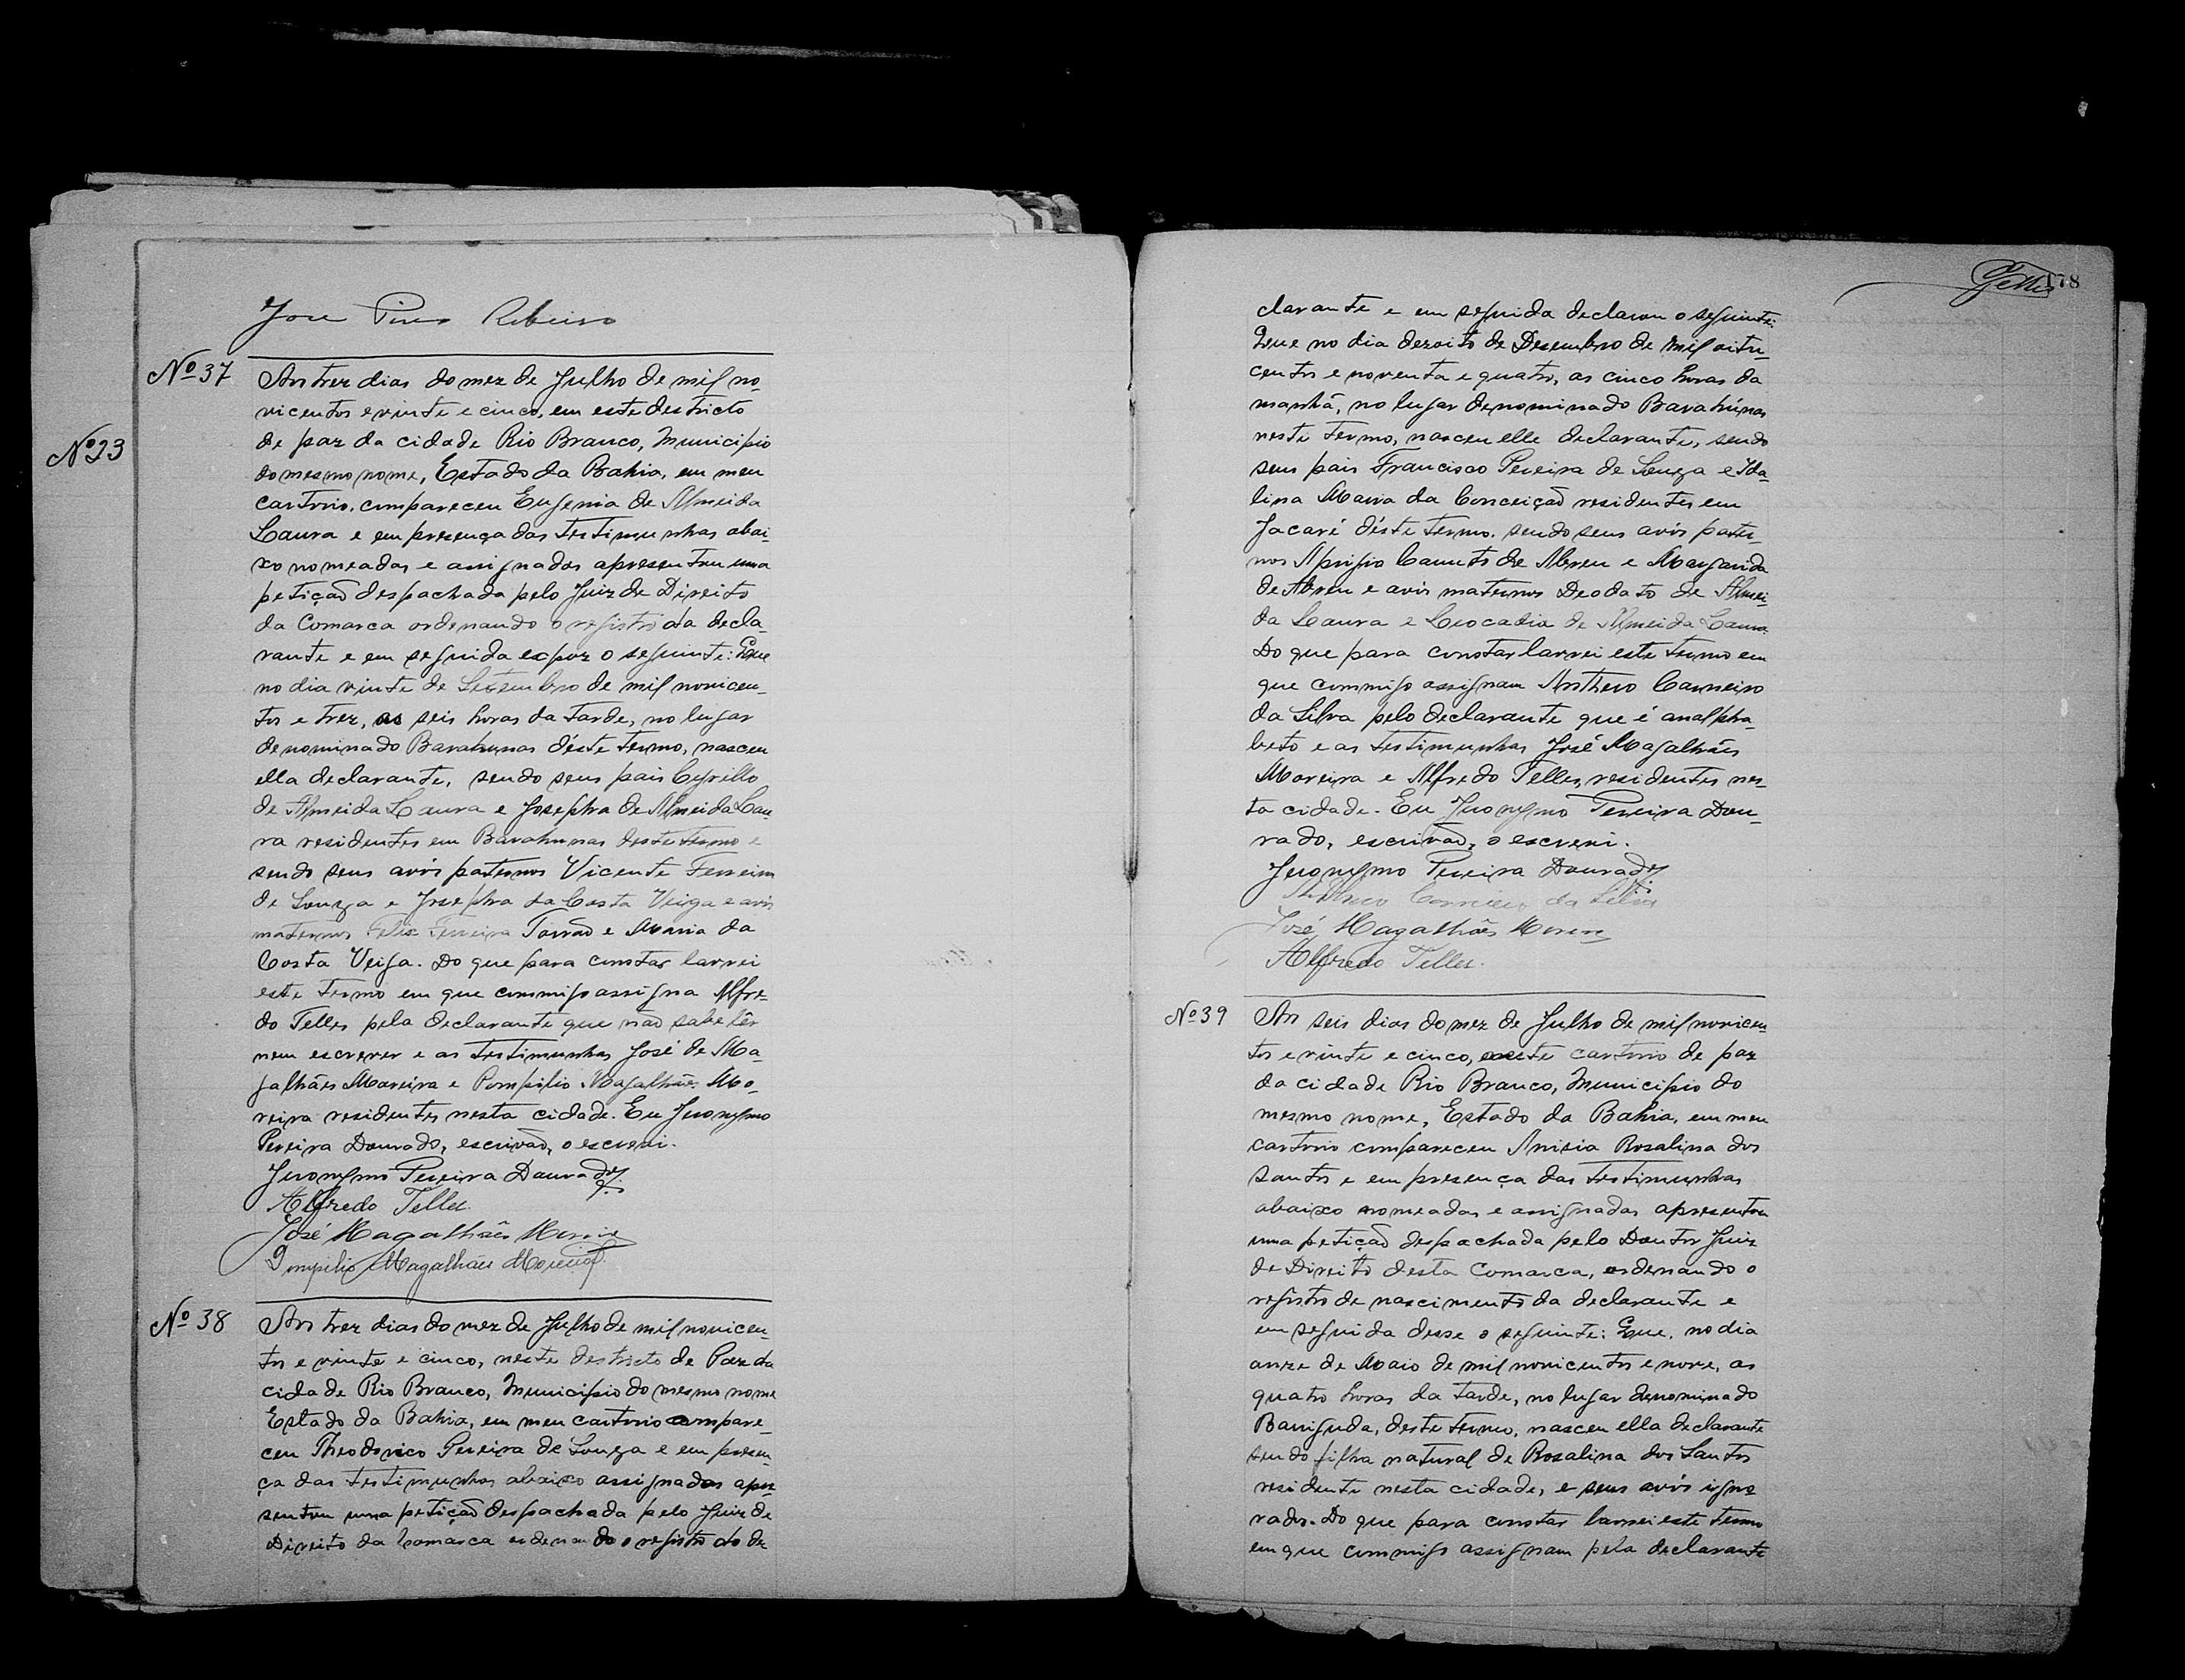 Jose Pires Ribeiro
Nº 37
Aos trez dias do mez de Julho de mil no-
vicentos e vinte e cinco, em este destricto
de paz da cidade Rio Branco, Municipio
Nº 23
do mesmo nome, Estado da Bahia, em meu
cartorio, compareceu Eugenia de Almeida
Laura e em presença das testimunhas abai-
xo nomeadas e assignadas apresentou uma
petição despachada pelo Juiz de Direito
da Comarca ordenando o registro da decla-
rante e em seguida expoz o seguinte: Que
no dia vinte de Setembro de mil novicen-
tos e trez, as seis horas da tarde, no lugar
denominado Barahunas déste termo, nasceu
ella declarante, sendo seus pais Cyrillo
de Almeida Laura e Josepha de Almeida Lau-
ra residentes em Barahunas deste termo e
sendo seus avós paternos Vicente Ferreira
de Souza e Josepha da Costa Veiga e avós
maternos Felix Ferreira Torrão e Maria da
Costa Veiga. Do que para constar larvei
este termo em que commigo assigna Alfre-
do Telles pela declarante que não sabe lêr
nem escrever e as testimunhas José de Ma-
galhães Moreira e Pompilio Magalhães Mo-
reira residentes nesta cidade. Eu Jeronymo
Pereira Dourado, escrivão, o escrevi.
Jeronymo Pereira Dourado
Alfredo Telles.
José Magalhães Moreira
Pompilio Magalhães Moreira
Nº 38
Aos trez dias do mez de Julho de mil novicen-
tos e vinte e cinco, neste destricto de Paz da
cidade Rio Branco, Municipio do mesmo nome
Estado da Bahia, em meu cartorio compare-
ceu Theodorico Pereira de Souza e em presen-
ça das testimunhas abaixo assignadas apre-
sentou uma petição despachada pelo Juiz de
Direito da Comarca ordenando o registro do de-
Telles
178
clarante e em seguida declarou o seguinte:
Que no dia dezoito de Desembro de mil oitu-
centos e noventa e quatro, as cinco horas da
manhã, no lugar denominado Barahúnas
neste termo, nasceu elle declarante, sendo
seus pais Francisco Pereira de Souza e Ida-
lina Maria da Conceição residentes em
Jacaré déste termo. sendo seus avós pater-
nos Aprigio Canuto de Abreu e Margarida
de Abreu e avós maternos Deodato de Almei-
da Laura e Leocadia de Almeida Laura.
Do que para constar larvei este termo em
que commigo assignam Anthero Carneiro
da Silva pelo declarante que é analpha-
beto e as testimunhas José Magalhães
Moreira e Alfredo Telles, residentes nes-
ta cidade. Eu Jeronymo Pereira Dou-
rado, escrivão, o escrevi.
Jeronymo Pereira Dourado
Anthero Carneiro da Silva
José Magalhães Moreira
Alfredo Telles.
Nº 39
Aos seis dias do mez de Julho de mil novicen-
tos e vinte e cinco, neste cartorio de paz
da cidade Rio Branco, Municipio do
mesmo nome, Estado da Bahia, em meu
cartorio compareceu Anisia Rosalina dos
Santos e em presença das testimunhas
abaixo nomeadas e assignadas apresentou
uma petição despachada pelo Doutor Juiz
de Direito desta Comarca, ordenando o
registro de nascimento da declarante e
em seguida desse o seguinte: Que, no dia
onze de Maio de mil novicentos e nove, as
quatro horas da tarde, no lugar denominado
Barriguda, deste termo, nasceu ella declarante
sendo filha natural de Rosalina dos Santos
residente nesta cidade, e seus avós igno-
rados. Do que para constar larvei este termo
em que commigo assignam pela declarante